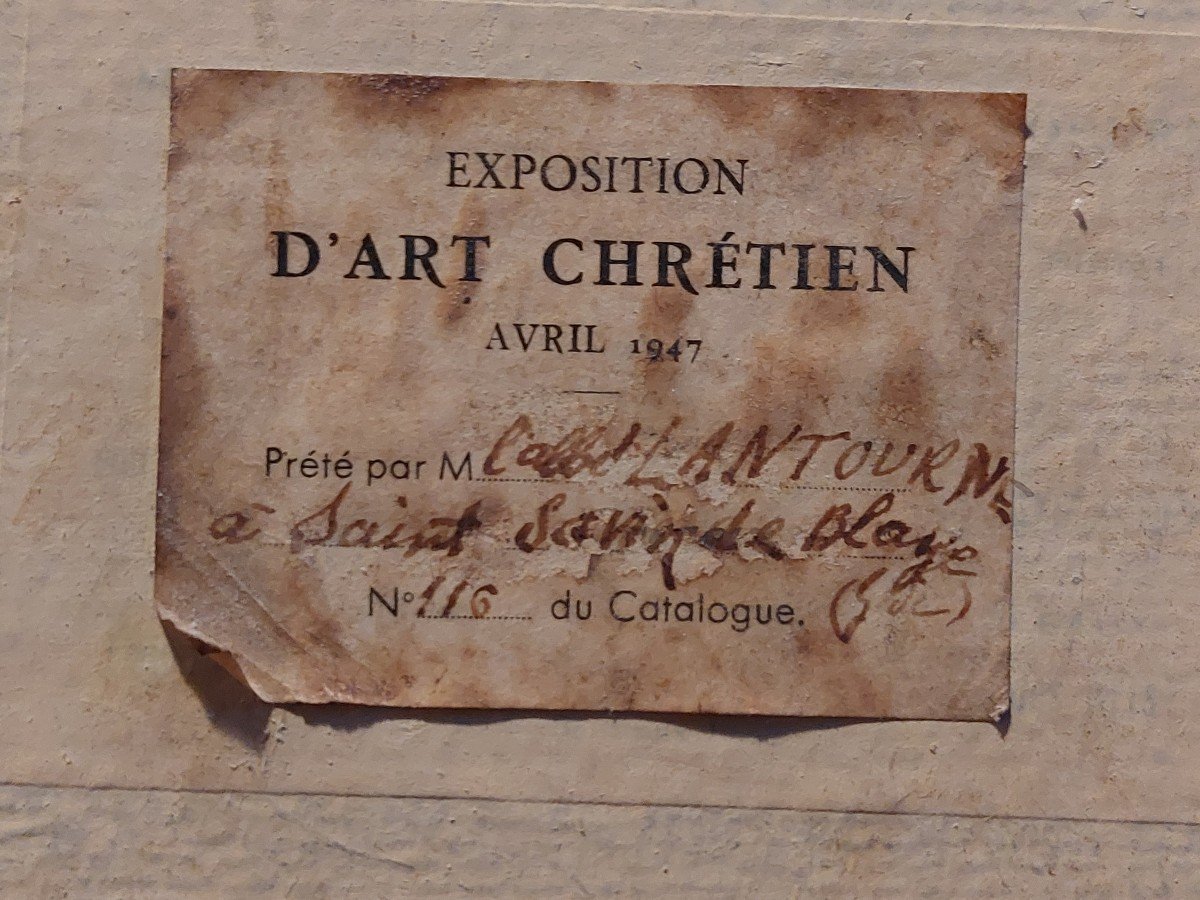 EXPOSITION
D'ART CHRÉTIEN
AVRIL 1947
Prété par M l'abbé LANTOURNE
à Saint Savin de Blaye
N° 116 du Catalogue.